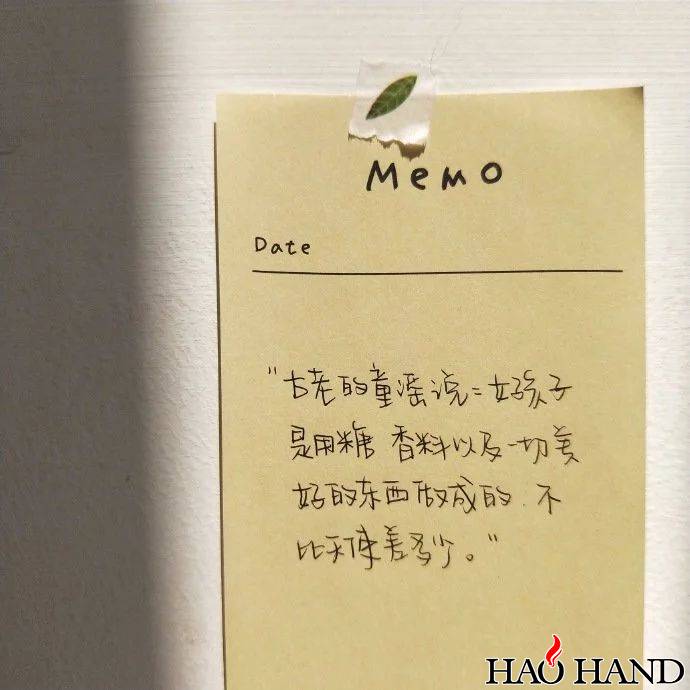 Memo
Date
"古老的童谣说：女孩子
是用糖 香料以及一切美
好的东西做成的.不
比天使差多少。"
HAO HAND